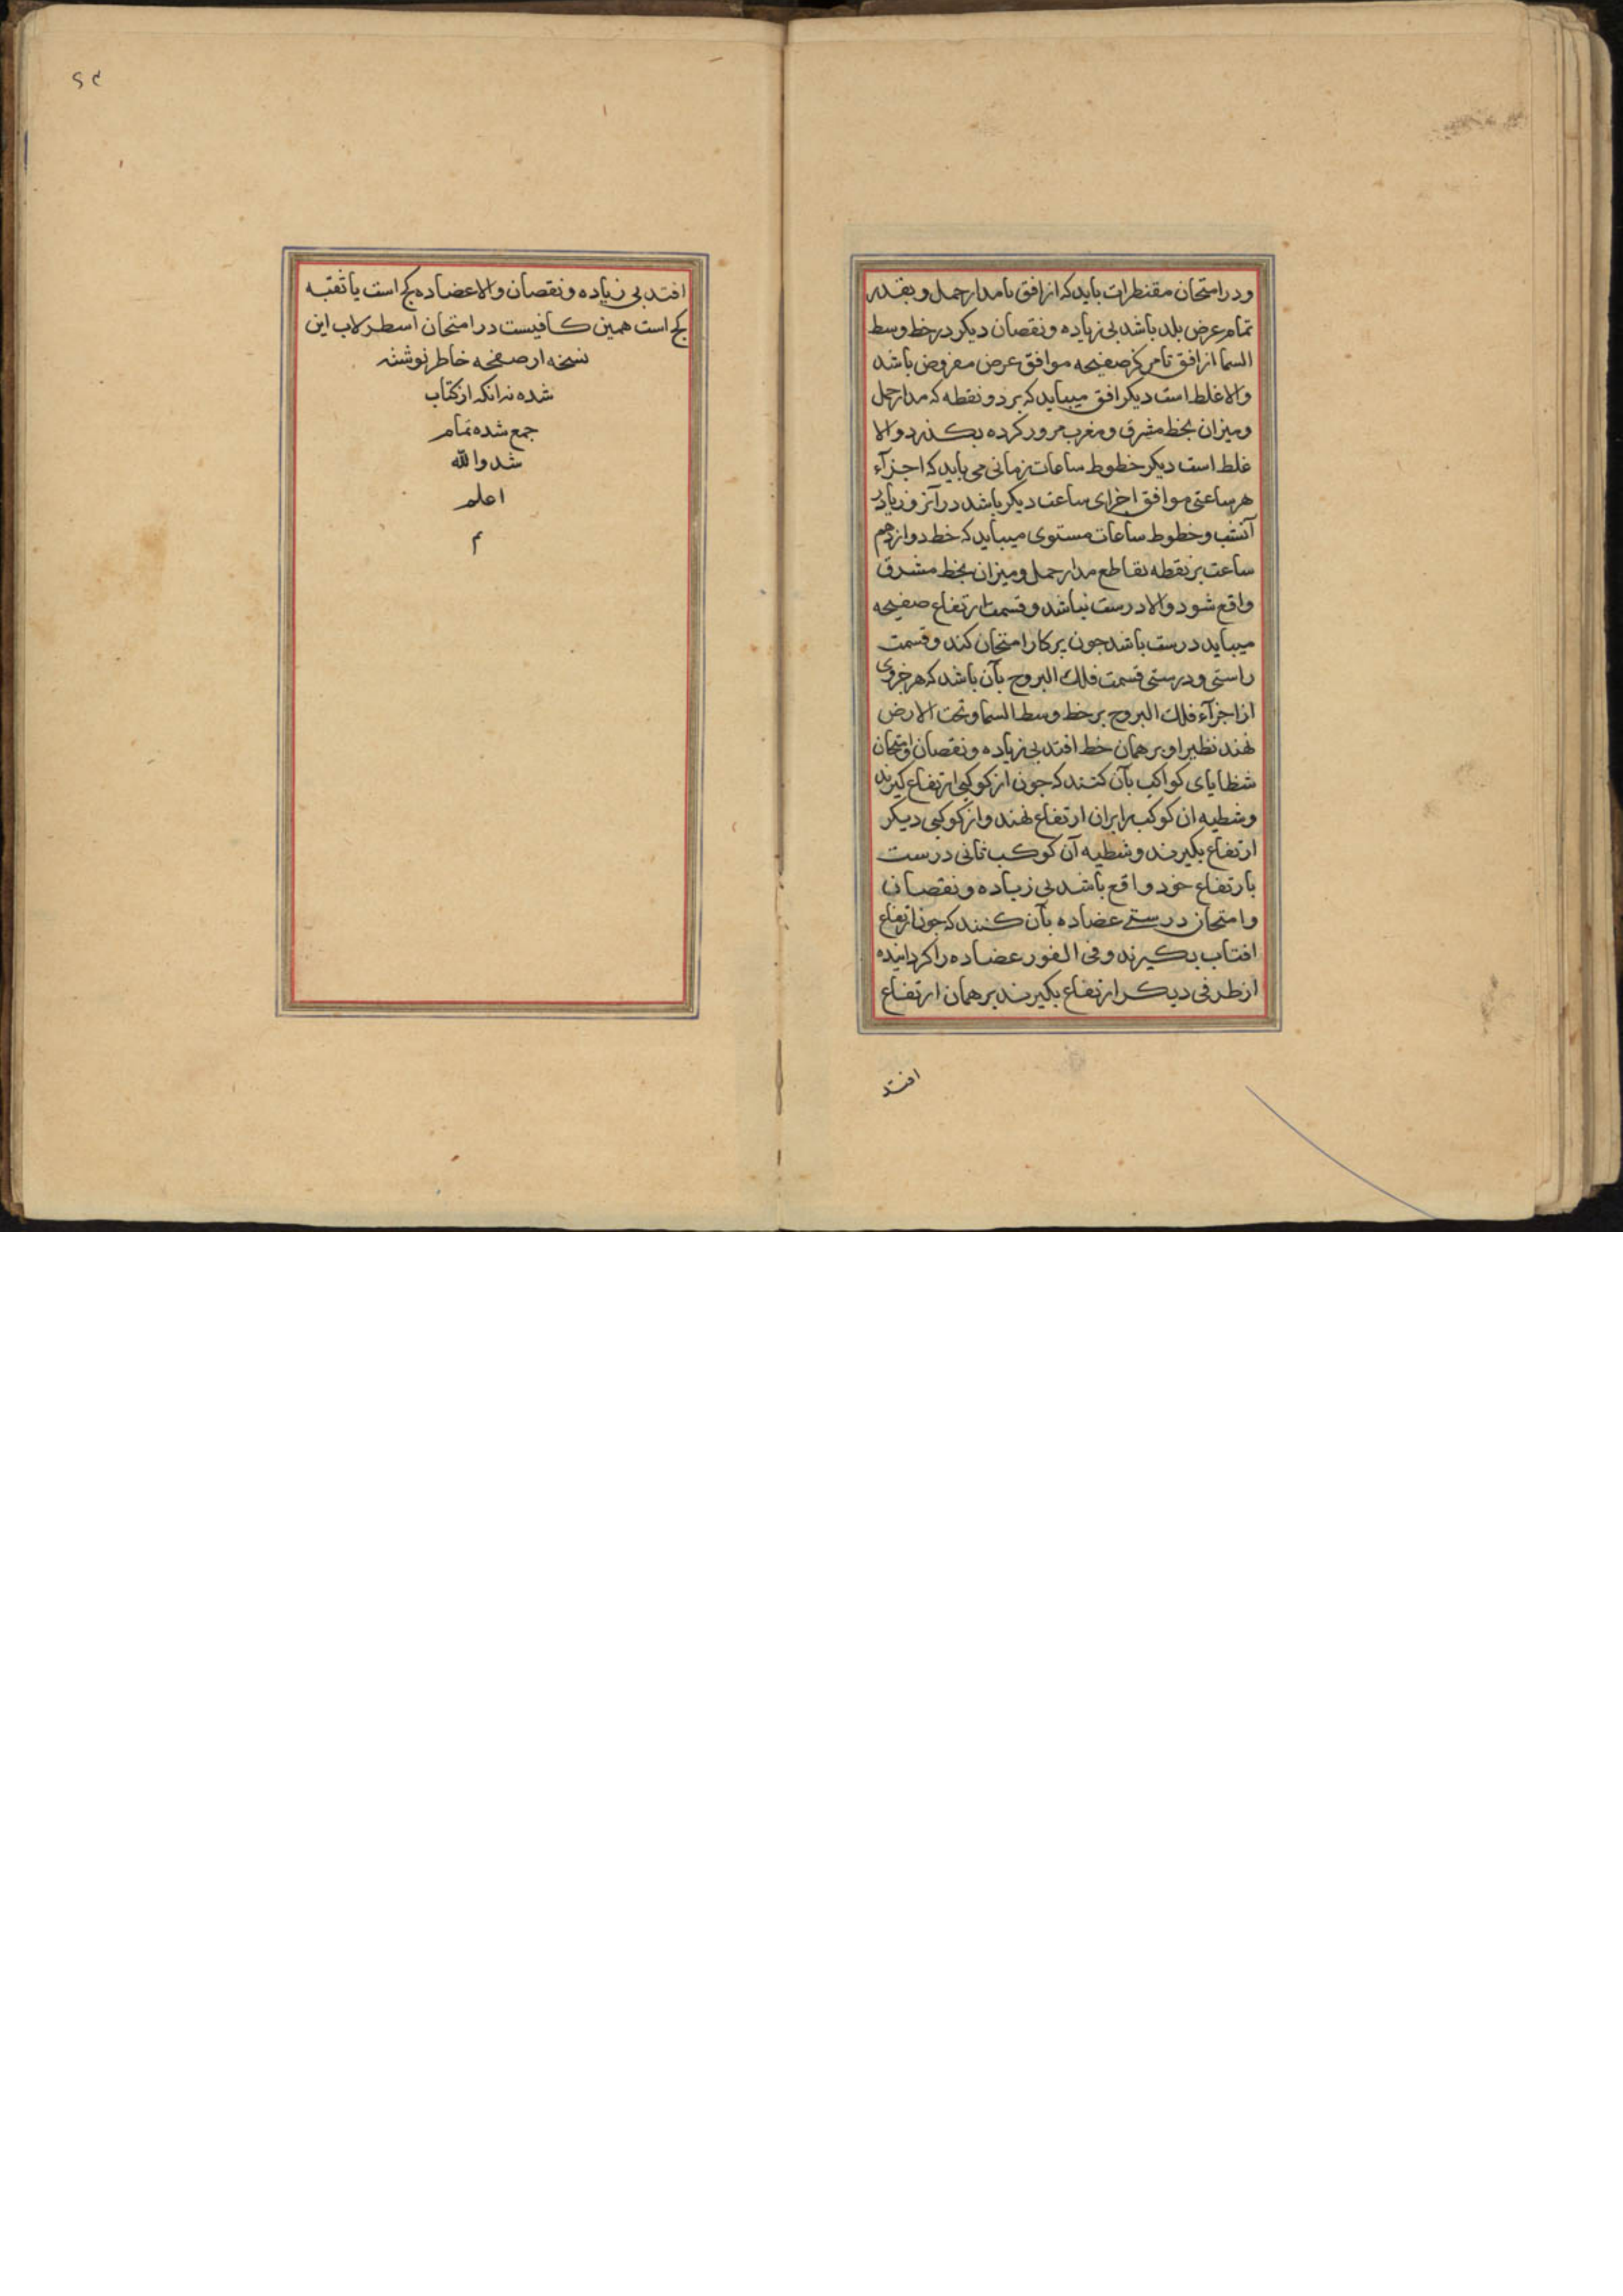 ودر امتحان مقنطرات باید که از افق تا مدار حمل و بقدر
تمام عرض بلد باشد بی زیاده و نقصان دیکر در خط وسط
السما از افق تا مرکز صفیحه موافق عرض مفروض باشد
والا غلط است دیکر افق میباید که بر دو نقطه که مدار حمل
ومیزان بخط مشرق ومغرب مرور کرده بکذرد والا
غلط است دیکر خطوط ساعات زمانی می باید که اجزآء
هر ساعتی موافق اجزای ساعت دیکر باشد در آنروز یا در
آنشب وخطوط ساعات مستوی میباید که خط دوازدهم
ساعت بر نقطه تقاطع مدار حمل ومیزان بخط مشرق
واقع شود والا درست نباشد وقسمت ارتفاع صفیحه
میباید درست باشد جون برکار امتحان کند وقسمت
راستی ودرستی قسمت فلك البروج بآن باشد که هر جزوی
از اجزآء فلك البروج بر خط وسط السما وتحت الارض
نهند نظیر او بر همان خط افتد بی زیاده ونقصان وامتحان
شظایای کواکب بآن کنند که جون از کوکبی ارتفاع کیرند
وشطیه ان کوکب را بران ارتفاع نهند واز کوکبی دیکر
ارتفاع بکیرند وشطیه آن کوکب ثانی درست
بارتفاع خود واقع باشد بی زیاده ونقصان
وامتحان درستے عضاده بآن کنند که جون ارتفاع
افتاب بکیرند وفی الفور عضاده را کردانیده
از طرفی دیکر ارتفاع بکیرند بر همان ارتفاع
افتد
افتد بی زیاده ونقصان والا عضاده کج است یا ثقبه
کج است همین کافیست در امتحان اسطرلاب این
نسخه از صفحه خاطر نوشته
شده نه انکه از کتاب
جمع شده تمام
شد والله
اعلم
م